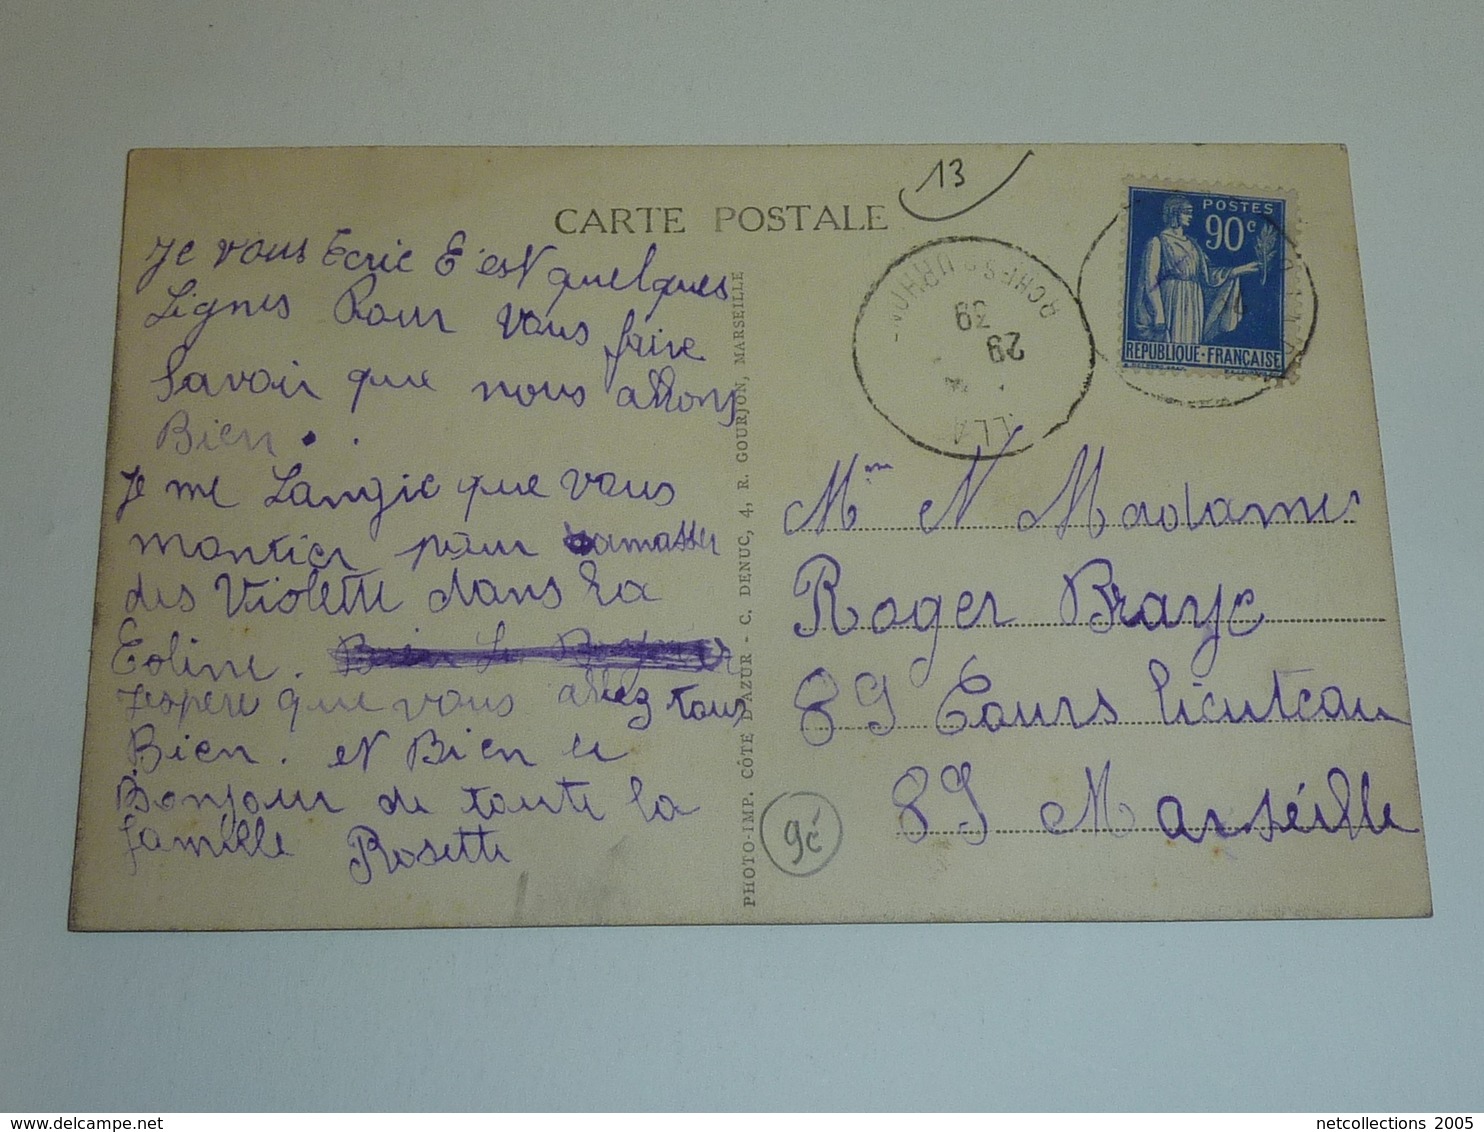 CARTE POSTALE
13
POSTES
90c
REPUBLIQUE-FRANCAISE
RCHES-DU-RHÔNE
LLA
29
39
Je vous Ecric E est quelques
Lignes Pour vous faire
Savoir que nous allons
Bien..
Je me Langic que vous
montier pour ramasser
des Violette dans la
Eoline.
J'espere que vous allez tous
Bien. et Bien le
Bonjour de toute la
famille Rosette
PHOTO-IMP. CÔTE D'AZUR - C. DENUC, 4, R. GOURJON, MARSEILLE
9é
Mme N Madames
Roger Braye
89 Cours lieuteau
89 Marséille
netcollections 2005